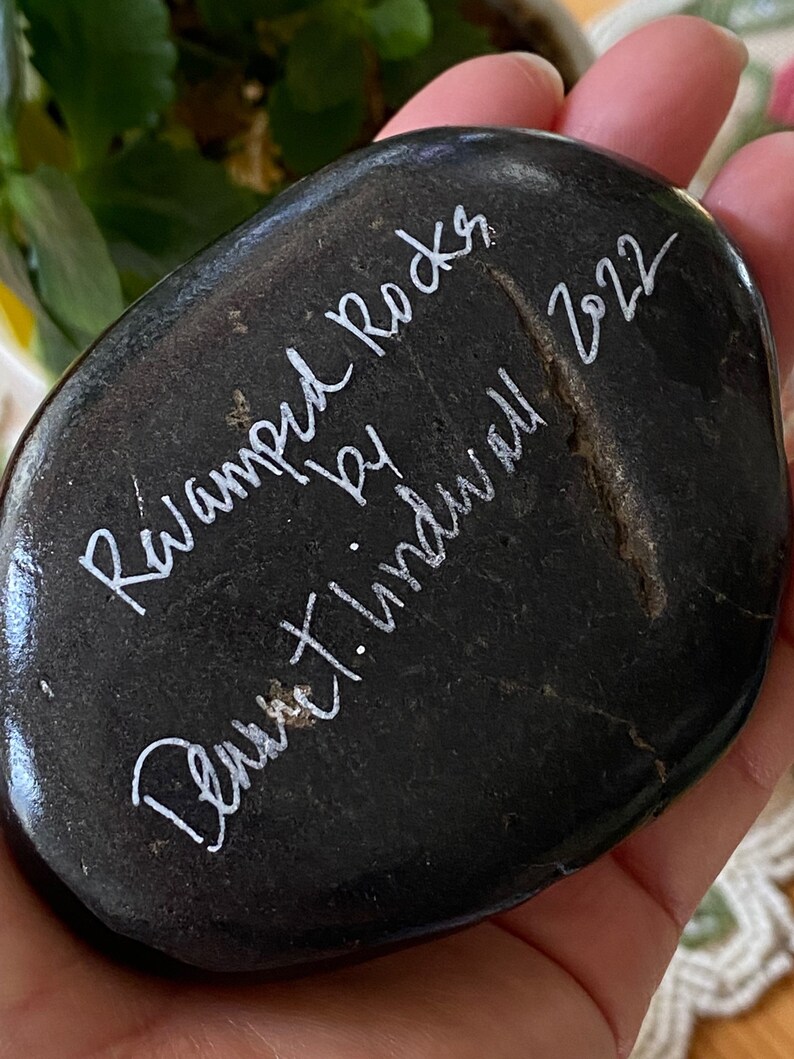 Revamped Rocks
by
Denise T. Lindwall
2022